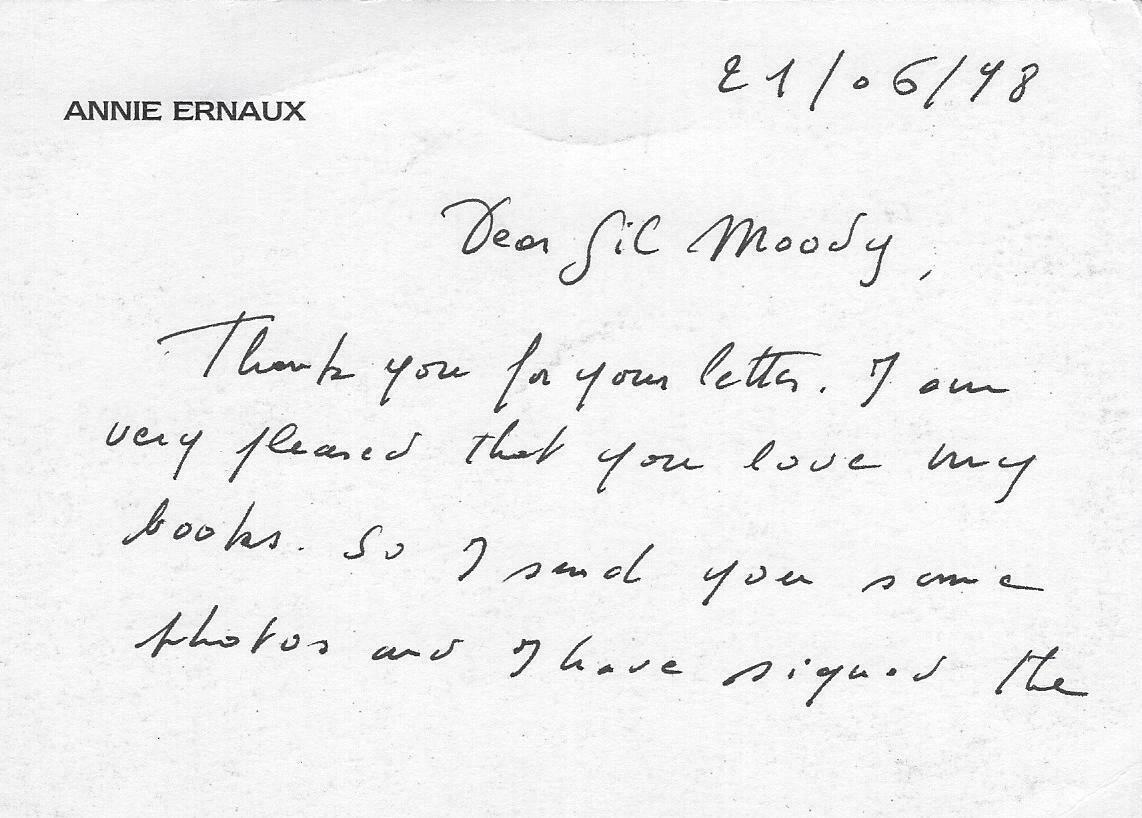 ANNIE ERNAUX
21/06/98
Dear Gil Moody,
Thank you for your letter. I am
very pleased that you love my
books. So I send you some
photos and I have signed the